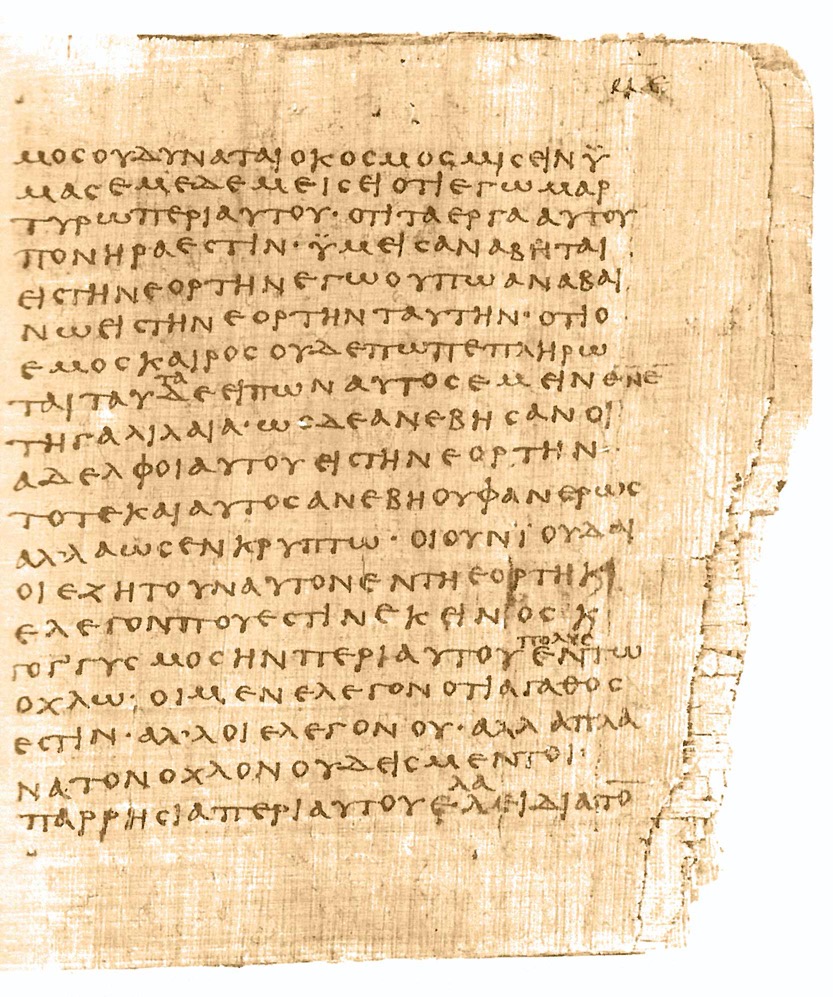 μοςουδυναταιοκοςμοςμιςεινϋ
μαςεμεδεμειςειοτιεγωμαρ
τυρωπεριαυτου·οτιταεργααυτου
πονηραεςτιν·ϋμειςαναβηται
ειςτηνεορτηνεγωουπωαναβαι
νωειςτηνεορτηνταυτην·οτιο
εμοςκαιροςουδεπωπεπληρω
ταιταυταδεειπωναυτοςεμεινενε
τηγαλιλαια·ωςδεανεβηςανοι
αδελφοιαυτουειςτηνεορτην
τοτεκαιαυτοςανεβηουφανερως
αλλαωςενκρυπτω·οιουνϊουδαι
οιεζητουναυτονεντηεορτηκ
ελεγονπουεςτινεκεινοςκ
γογ'γυςμοςηνπεριαυτουπολυςεντω
οχλω:οιμενελεγονοτιαγαθος
εςτιν·αλλοιελεγονου·αλλαπλα
νατονοχλονουδειςμεντοι
παρρηςιαπεριαυτουελαλειδιατο